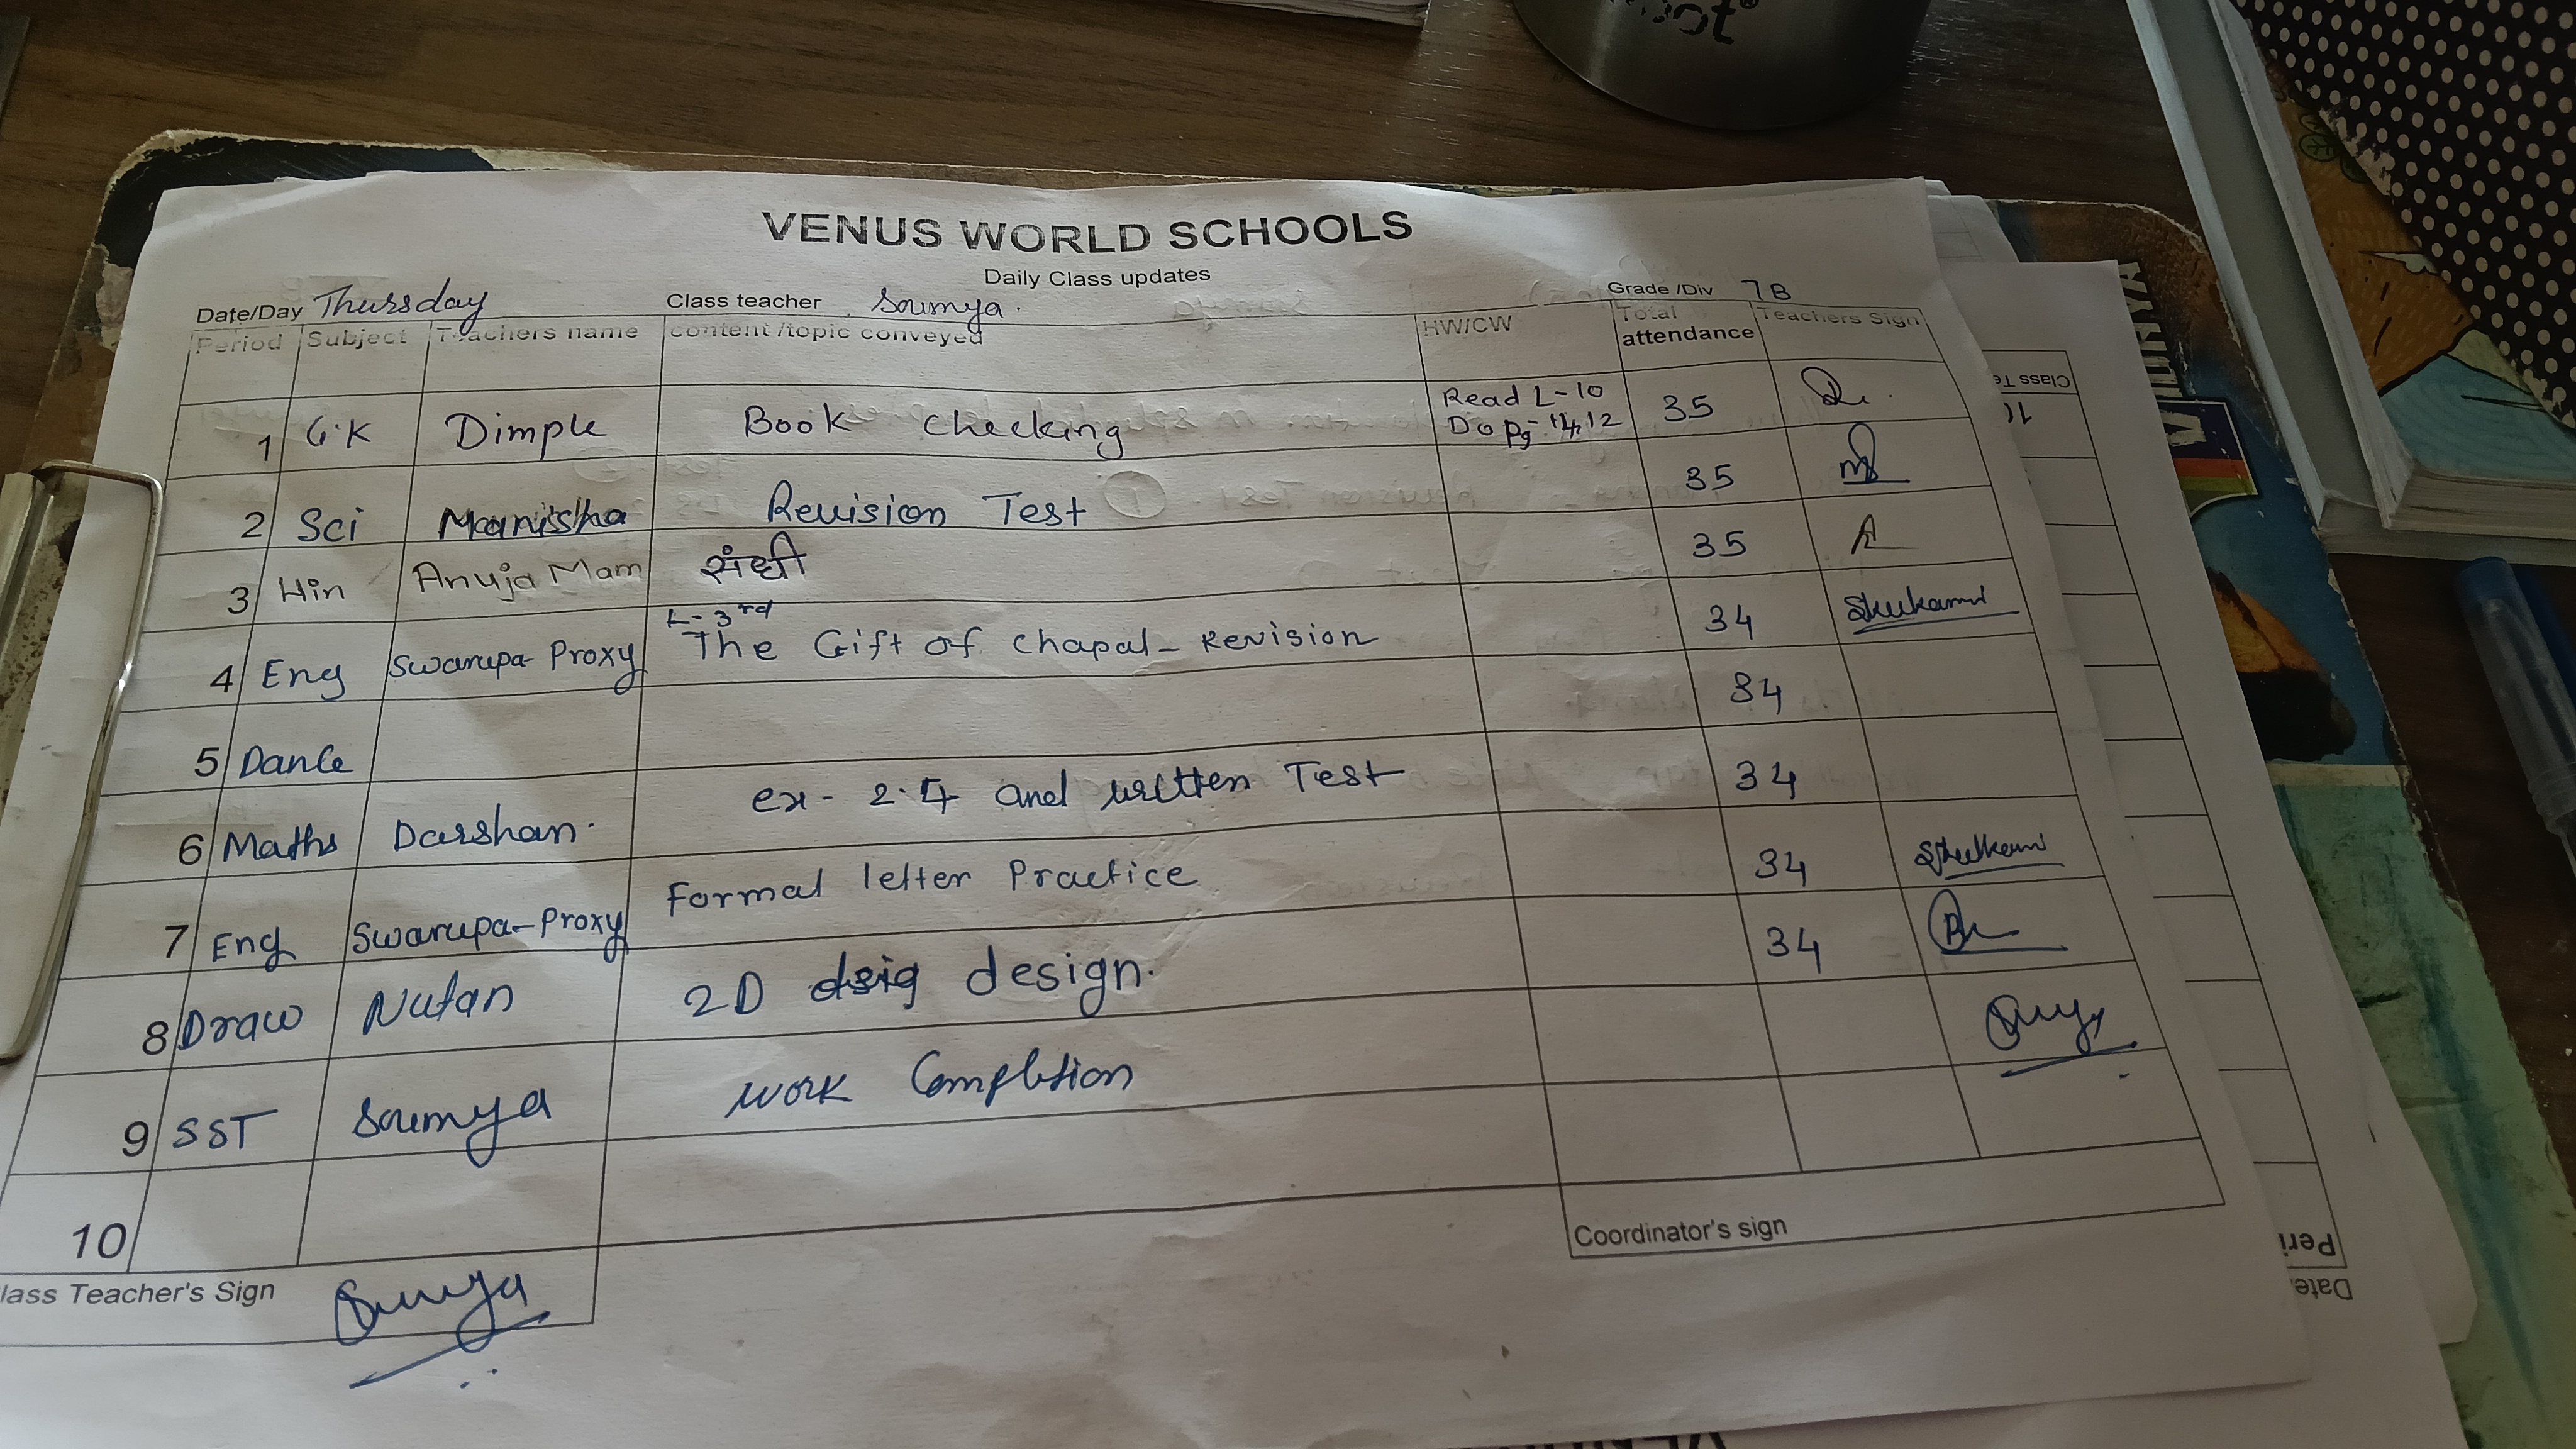 VENUS WORLD SCHOOLS
Daily Class updates
Date/Day Thursday Class teacher Soumya. Grade /Div 7B
Period Subject Teachers name content /topic conveyed HW/CW Total attendance Teachers Sign
1 G.K Dimple Book checking Read L-10 35
Do pg- 11, 12
2 Sci Manissha Revision Test 35
3 Hin Anuja Mam संधी 35
L-3rd
4 Eng Swarupa-Proxy The Gift of chapal - Revision 34
5 Dance 34
6 Maths Darshan. ex- 2.4 and written Test 34
7 Eng Swarupa-Proxy Formal letter Practice 34
8 Draw Nutan 2D dsig design. 34
9 SST Soumya work Completion
10
Coordinator's sign
lass Teacher's Sign
Class Te
Peri
Date